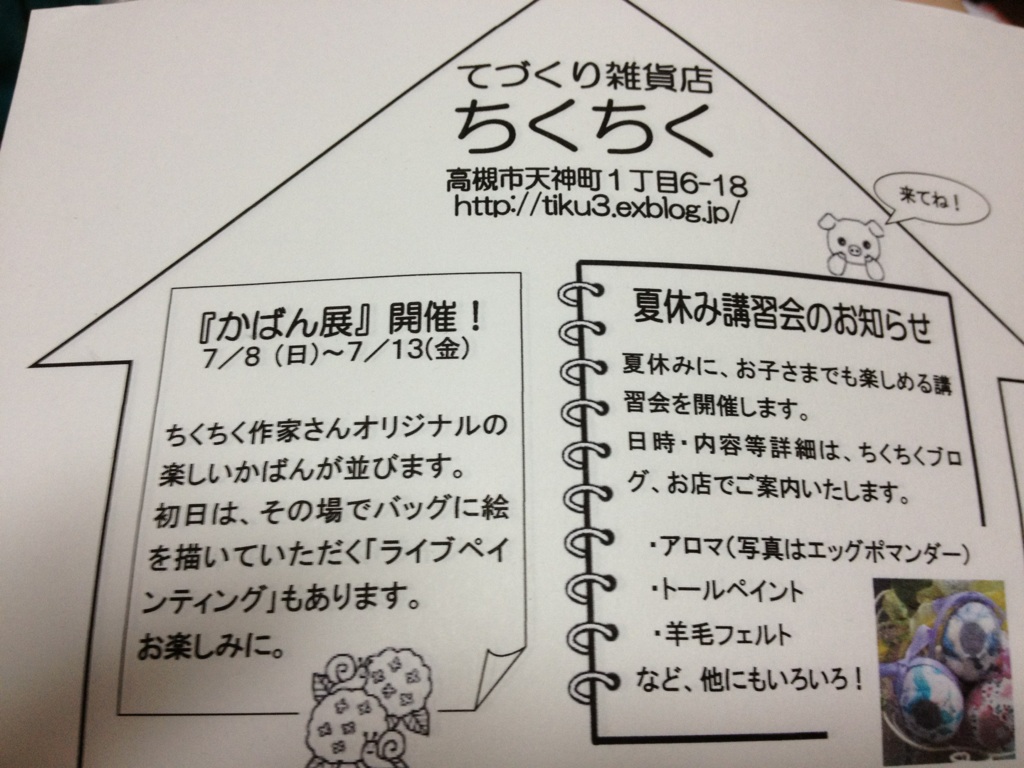 てづくり雑貨店
ちくちく
高槻市天神町1丁目6-18
http://tiku3.exblog.jp/
来てね!
『かばん展』開催!
7/8(日)~7/13(金)
ちくちく作家さんオリジナルの
楽しいかばんが並びます。
初日は、その場でバッグに絵
を描いていただく「ライブペイ
ンティング」もあります。
お楽しみに。
夏休み講習会のお知らせ
夏休みに、お子さまでも楽しめる講
習会を開催します。
日時・内容等詳細は、ちくちくブロ
グ、お店でご案内いたします。
・アロマ(写真はエッグポマンダー)
・トールペイント
・羊毛フェルト
など、他にもいろいろ!